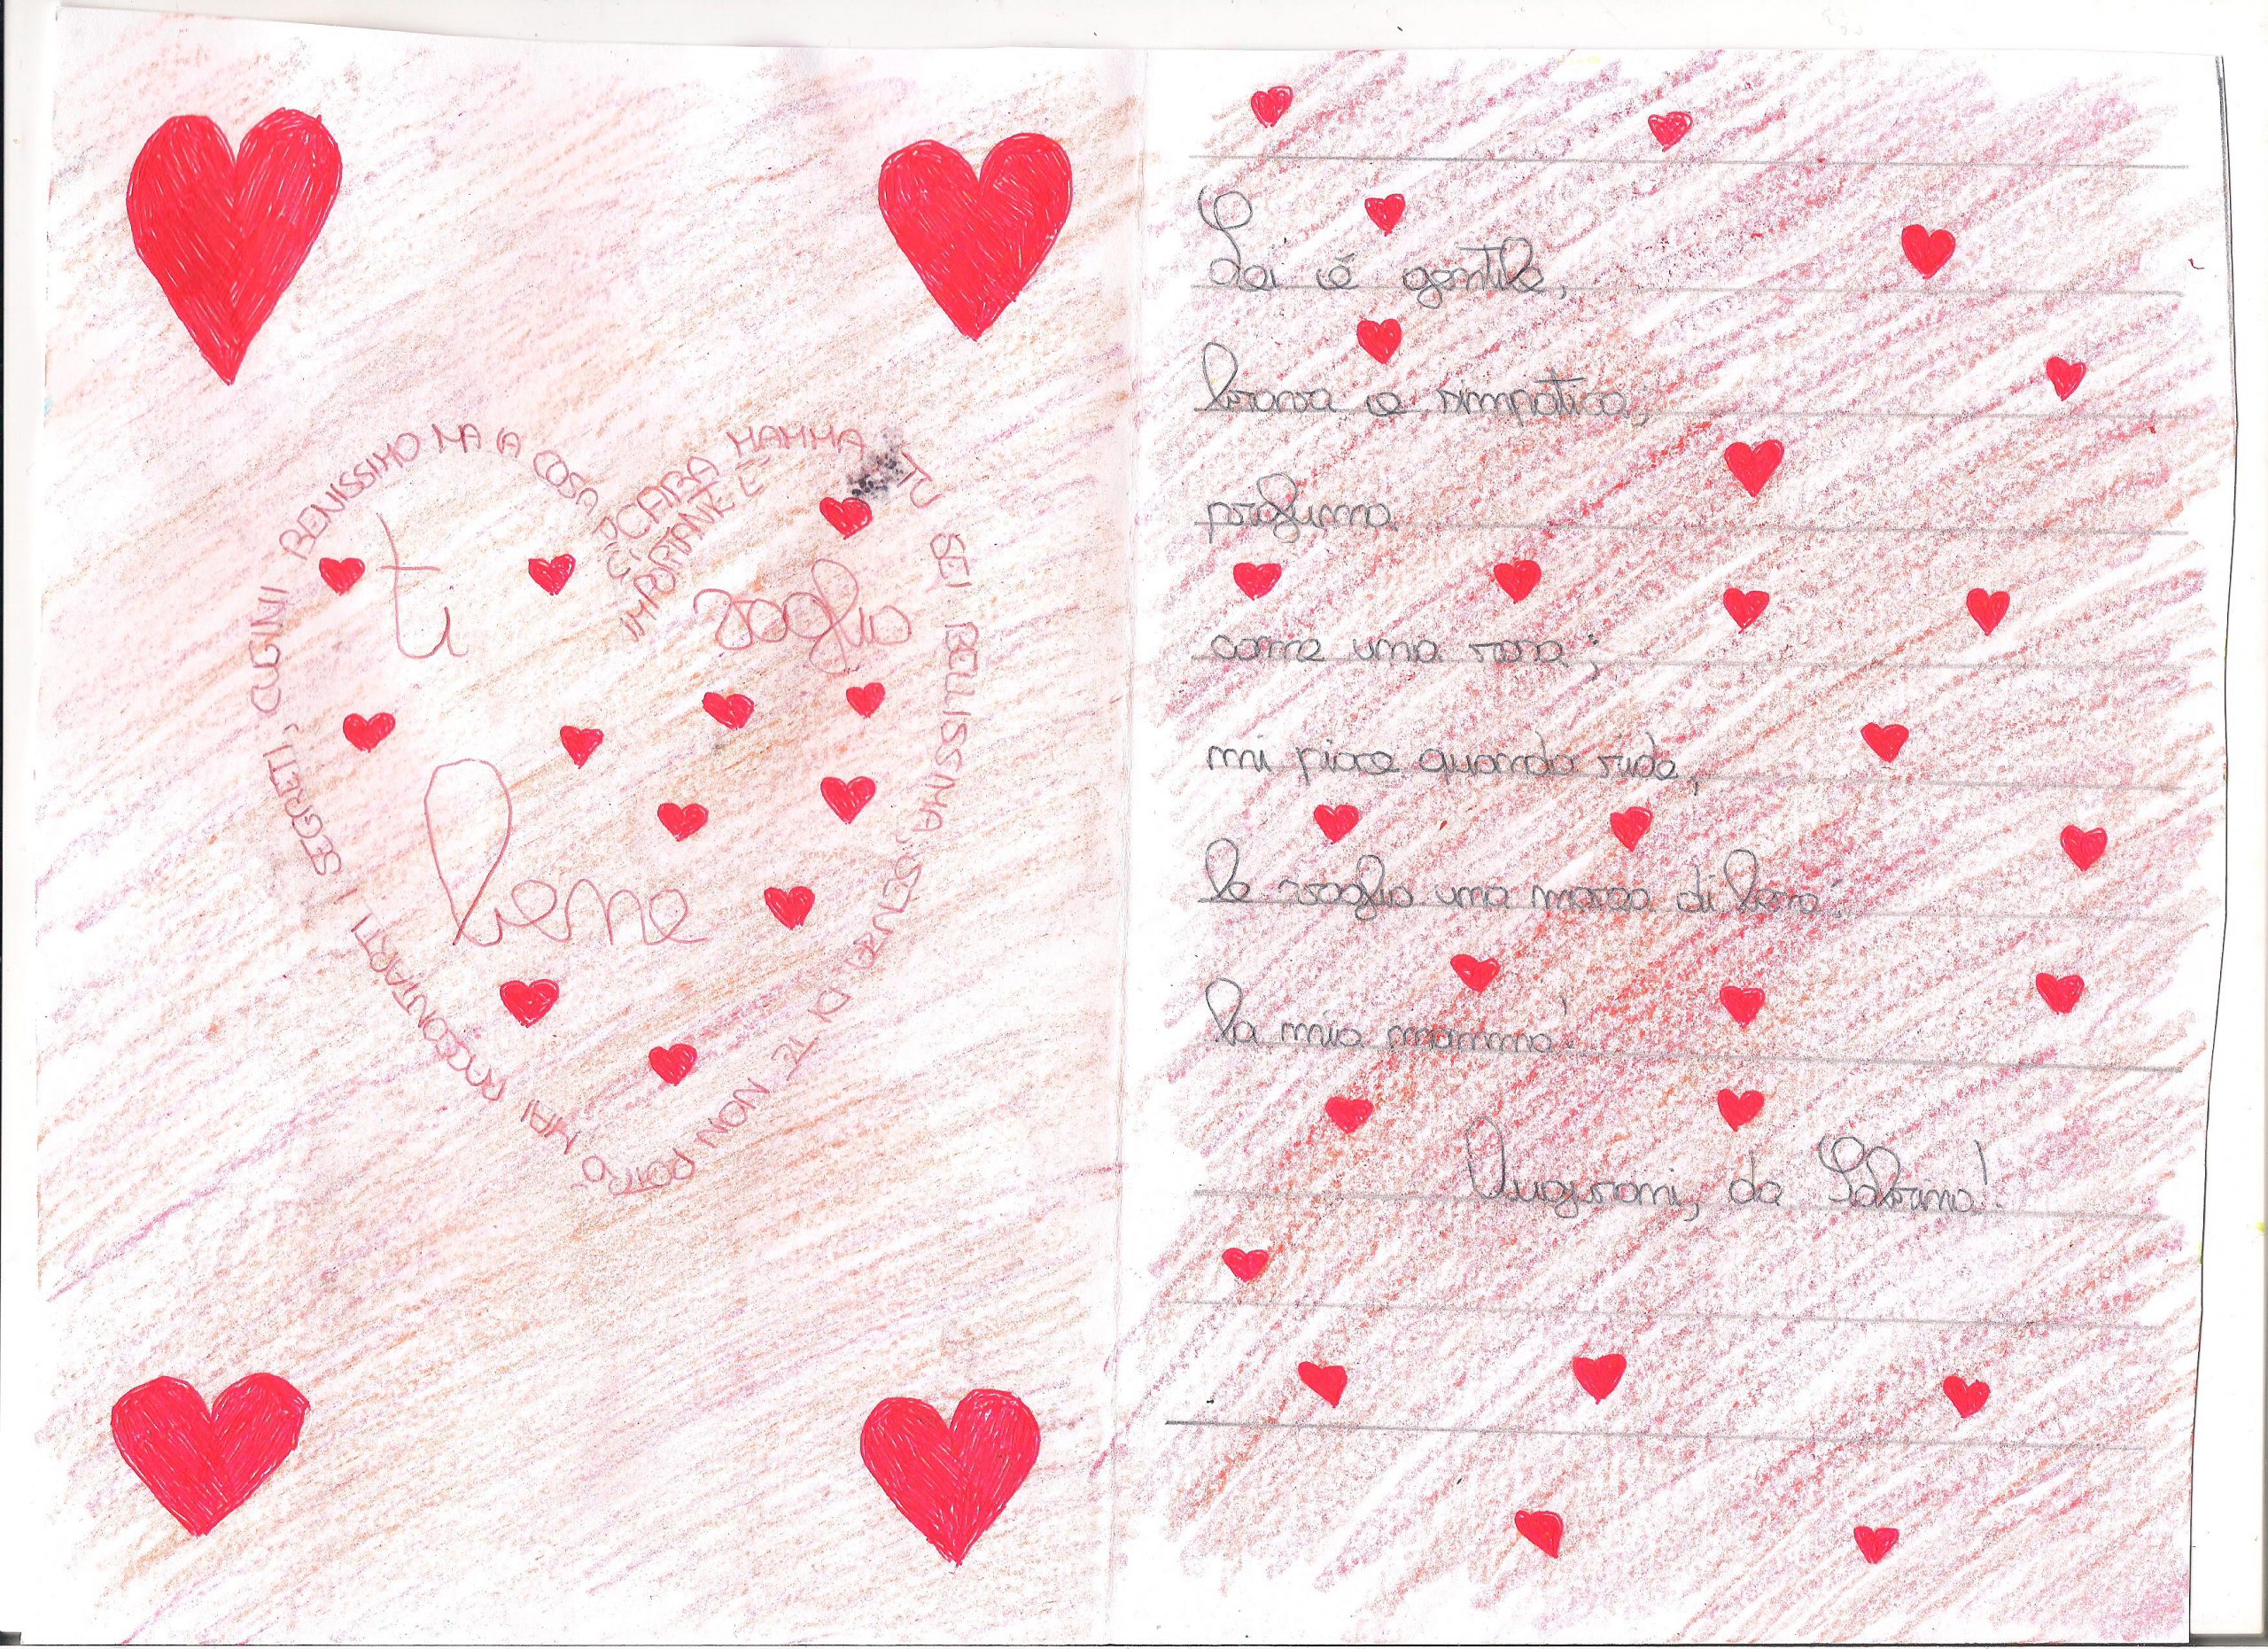 CARA MAMMA TU SEI BELLISSIMA, SENZA DI TE NON POTRÒ MAI RACCONTARTI I SEGRETI, CUCINI BENISSIMO MA LA COSA PIÙ IMPORTANTE È
ti
voglio
bene
Lei è gentile,
brava e simpatica,
profuma
come una rosa;
mi piace quando ride,
le voglio una marea di bene:
la mia mamma!
Auguroni, da